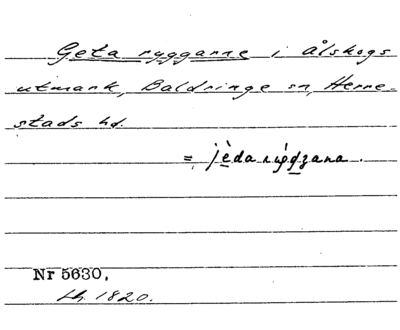 Geta ryggarne i Ålskogs
utmark, Baldringe sn, Herre-
stads hd.
= jèda rýgʒana.
Nr 5630.
Lh. 1820.